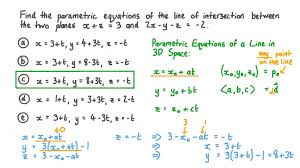 Find the parametric equations of the line of intersection between
the two planes x + z = 3 and 2x - y - z = -2.
a x = 3+t, y = 4+3t, z = -t
b x = 3+t, y = 8-3t, z = -t
c x = 3+t, y = 8+3t, z = -t
d x = 1+t, y = 3+3t, z = 2-t
e x = 3+t, y = 4-3t, z = -t
Parametric Equations of a Line in
3D Space:
any point
on the line
x = x₀ + at
y = y₀ + bt
z = z₀ + ct
(x₀, y₀, z₀) = P₀
<a, b, c> = d
x = x₀ + at
y = 3(x₀ + at) - 1
z = 3 - x₀ - at
z = -t
⇒ 3 - x₀ - at = -t
⇒ x = 3 + t
⇒ y = 3(3+t) - 1 = 8 + 3t